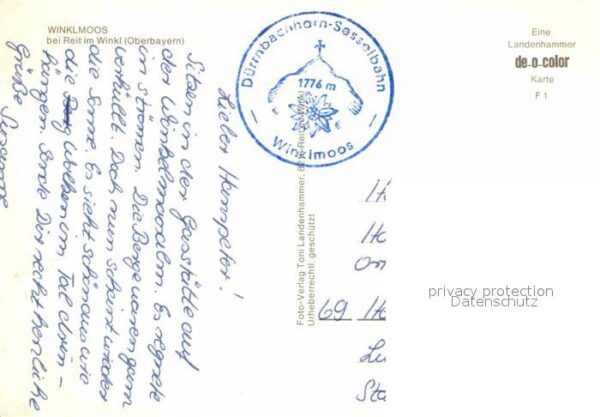 WINKLMOOS
bei Reit im Winkl (Oberbayern)
Lieber Hanspeter!
Sitzen in der Gaststätte auf
der Winkelmoosalm. Es regnete
in strömen. Die Berge waren ganz
verhüllt. Doch nun scheint wieder
die Sonne. Es sieht schön aus wie
die Wolken im Tal drin-
hängen. Sende Dir recht herzliche
Grüße
Susanne
Dürrnbachhorn-Sesselbahn
1776 m
Winklmoos
Foto-Verlag Toni Landenhammer, Reit im Winkl
Urheberrechtl. geschützt
Eine
Landenhammer
de-o-color
Karte
F 1
69
privacy protection
Datenschutz